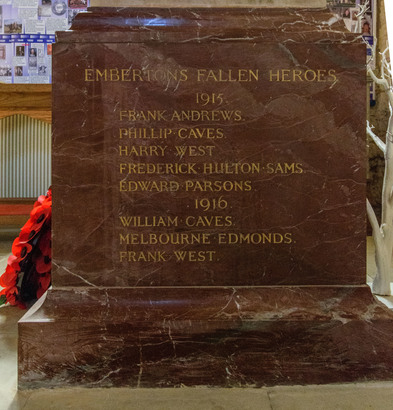 EMBERTONS FALLEN HEROES.
1915.
FRANK ANDREWS.
PHILLIP CAVES.
HARRY WEST.
FREDERICK HULTON-SAMS.
EDWARD PARSONS.
1916.
WILLIAM CAVES.
MELBOURNE EDMONDS.
FRANK WEST.